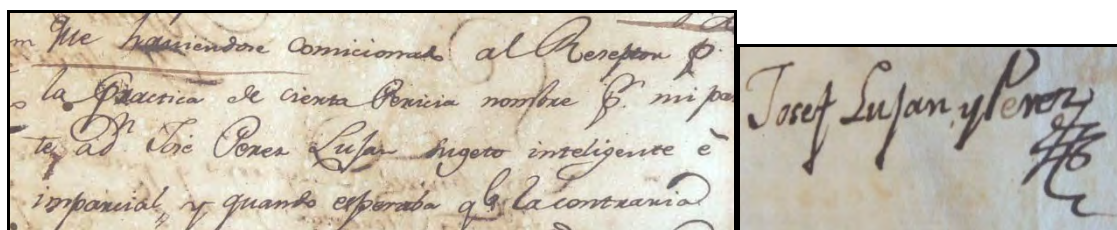 que haviendose comicionado al Reseptor p.
la Practica de cierta Pericia nombre p. mi par
te, a D.n José Perez Lujan sugeto inteligente è
imparcial, y quando esperaba q.e la contraria
Josef Lujan y Perez